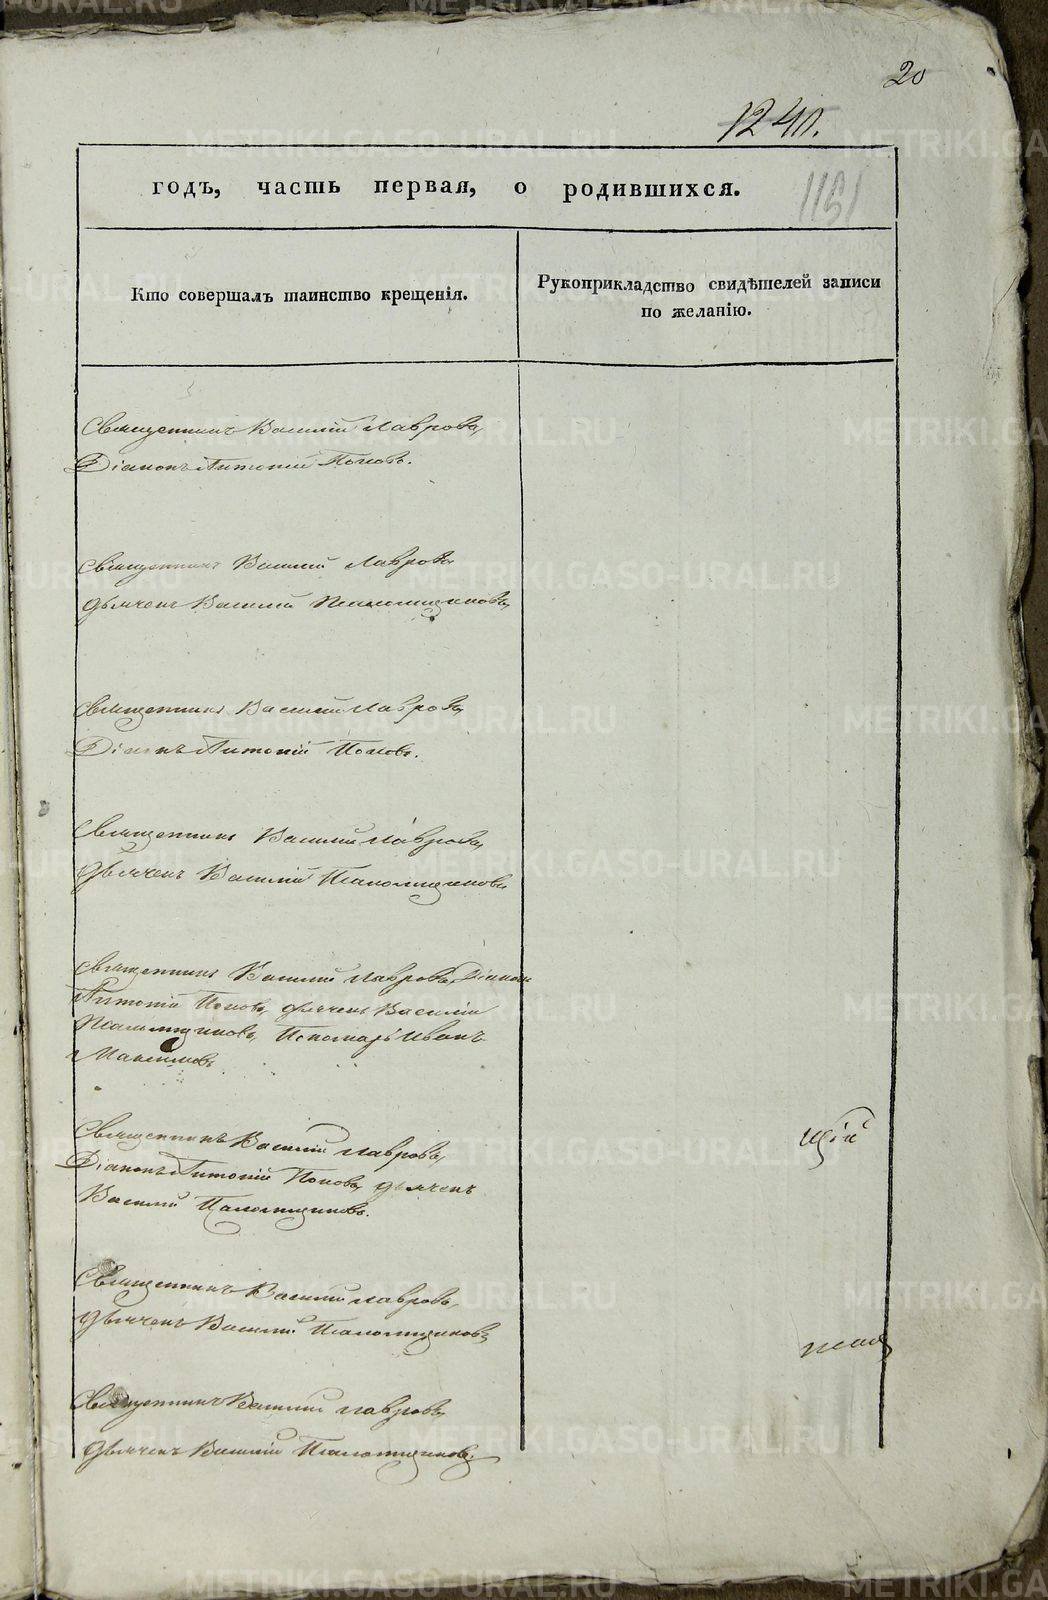 20
1240.
годъ, часть первая, о родившихся.
1151
Кто совершалъ таинство крещенія.
Рукоприкладство свидѣтелей записи
по желанію.
Священникъ Василій Лавровъ,
Діаконъ Антоній Поповъ.
Священникъ Василій Лавровъ
дьячекъ Василій
Священникъ Василій Лавровъ,
Діаконъ Антоній Поповъ.
Священникъ Василій Лавровъ,
Дьячекъ Василій
Священникъ Василій Лавровъ, Діаконъ
Антоній Поповъ, дьячекъ Василій
Пономарь Иванъ
Максимовъ
Священникъ Василій Лавровъ,
щій
Діаконъ Антоній Поповъ, дьячекъ
Василій
Священникъ Василій Лавровъ,
дьячекъ Василій
Священникъ Василій Лавровъ,
дьячекъ Василій
METRIKI.GASO-URAL.RU